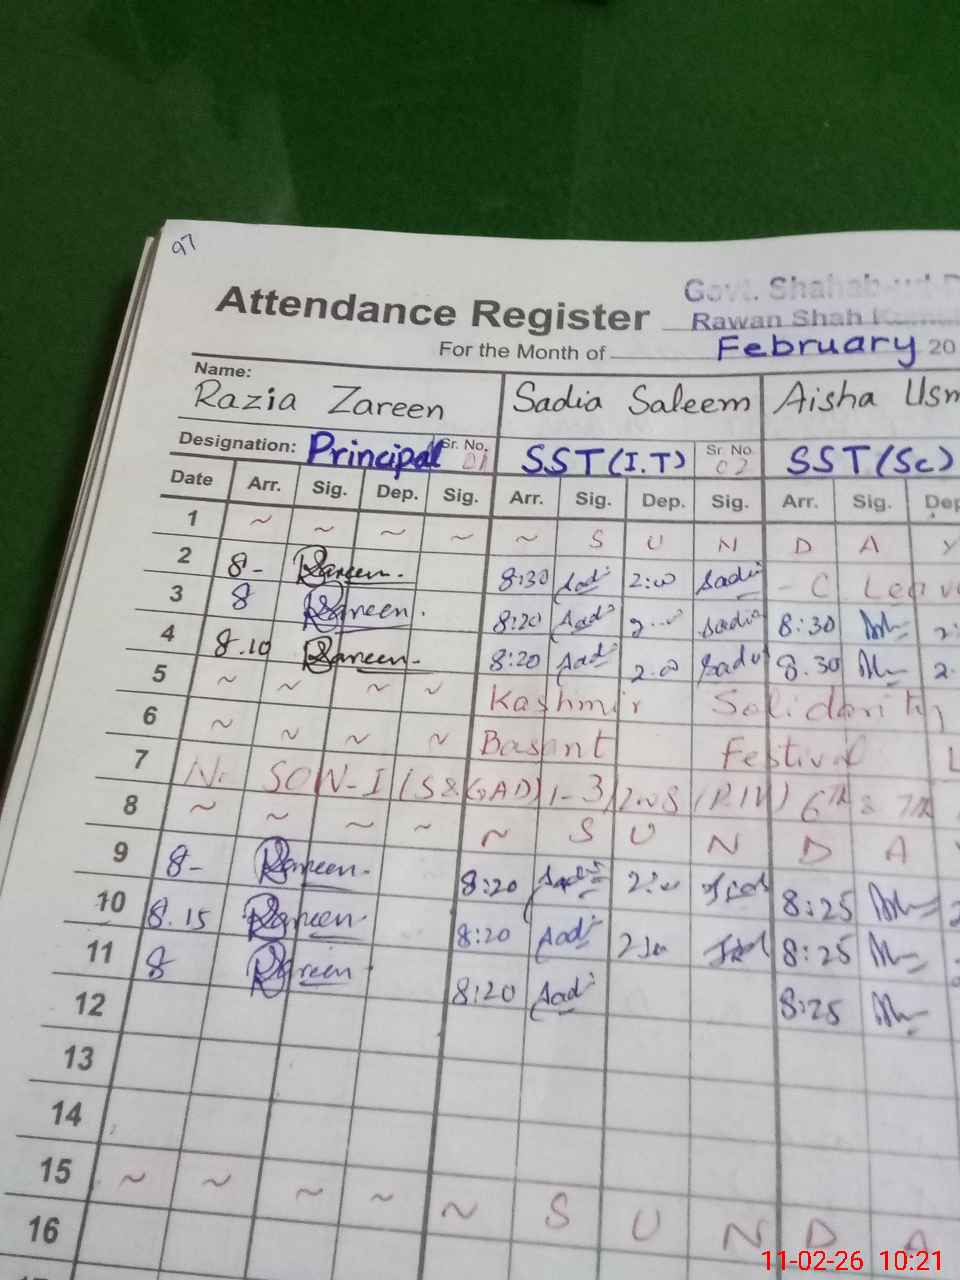 97
Attendance Register Govt. Shahab-ud-D
Rawan Shah
For the Month of February 20
Name:
Razia Zareen Sadia Saleem Aisha Usm
Designation: Principal Sr. No. 01 SST (I.T) Sr. No. 02 SST (Sc)
Date Arr. Sig. Dep. Sig. Arr. Sig. Dep. Sig. Arr. Sig. Dep
1 ~ ~ ~ ~ ~ S U N D A Y
2 8- Zareen. 8:30 Sadi 2:00 Sadi - C Leav
3 8 Zareen. 8:20 Sadi 2 Sadia 8:30 2:
4 8.10 Zareen. 8:20 Sadi 2.00 Sadi 8.30 2.
5 ~ ~ ~ ~ Kashmir Solidarity
6 ~ ~ ~ ~ Basant Festival
7 No SO N-I (S&GAD) 1-3/2008 (P.IV) 6th & 7th
8 ~ ~ ~ ~ ~ S U N D A Y
9 8- Zareen. 8:20 2:00 8:25
10 8.15 Zareen. 8:20 Sadi 2:00 8:25
11 8 Zareen 8:20 Sadi 8:25
12
13
14
15 ~ ~ ~ ~ ~ S U N D A
16
11-02-26 10:21